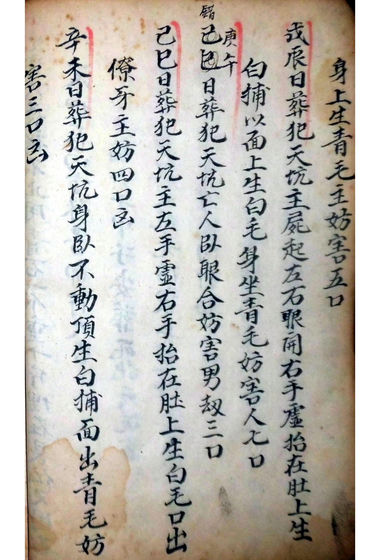 身上生青毛主妨害五口
戊辰日葬犯天坑主屍起左右眼開右手虛抬在肚上生
白捕以面上生白毛身坐青毛妨害人七口
錯
庚午
己巳日葬犯天坑亡人臥眼合妨害男刼三口
己巳日葬犯天坑主左手虛右手抬在肚上生白毛口出
僚牙主妨四口凶
辛未日葬犯天坑身臥不動頂生白捕面出青毛妨
害三口凶